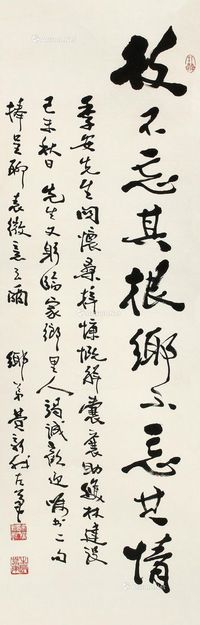 枝不忘其根鄉不忘其情
季安先生関懷桑梓慷慨解囊襄助雙林建設
己未秋日先生又躬臨家鄉里人竭誠歡迎囑書二句
捧呈聊表微意云爾
鄉弟費新我左筆